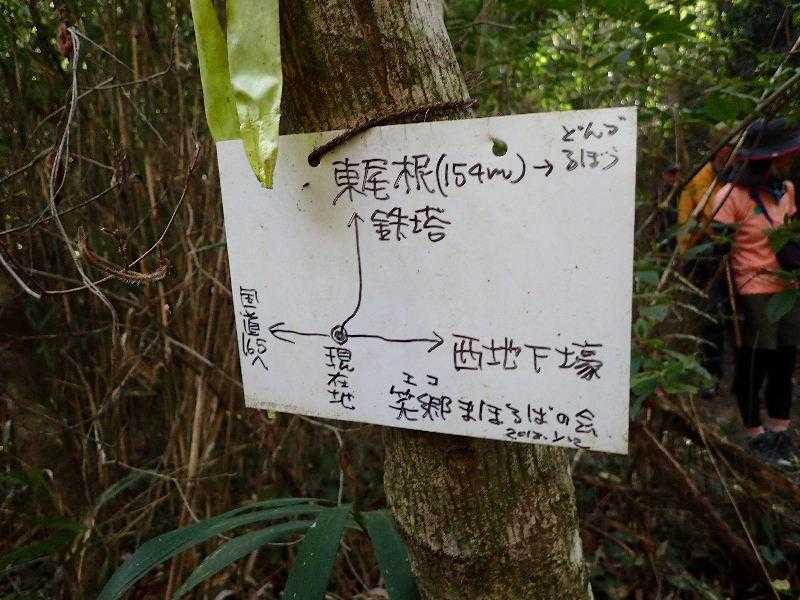 どんづ
るぼう
東尾根(154m)→
鉄塔
国道165へ
現在地
西地下壕
エコ
笑郷まほろばの会